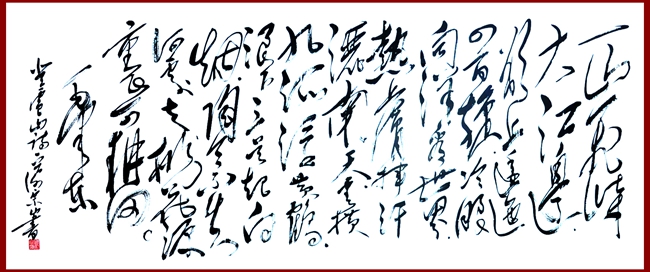 一山飞峙
大江边
跃上逶迤
四百旋冷眼
向洋看世界
热肤挥汗
洒南天云横
九派黄鹤
浪下三吴起白
烟陶令不知
何处去桃花源
可耕田
毛泽东
登庐山诗 书